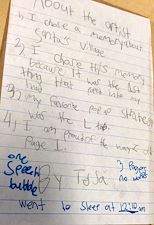 About the artist
1) I chose a memory about
Santa's Village
2) I chose this memory
because it was the last
thing that
3) my favorite pop up strategy
was the L tab.
4) I am proud of the
Page 1.
one
Speech
bubble
3) Pages
no words
By
went to sleep at 12:10 am